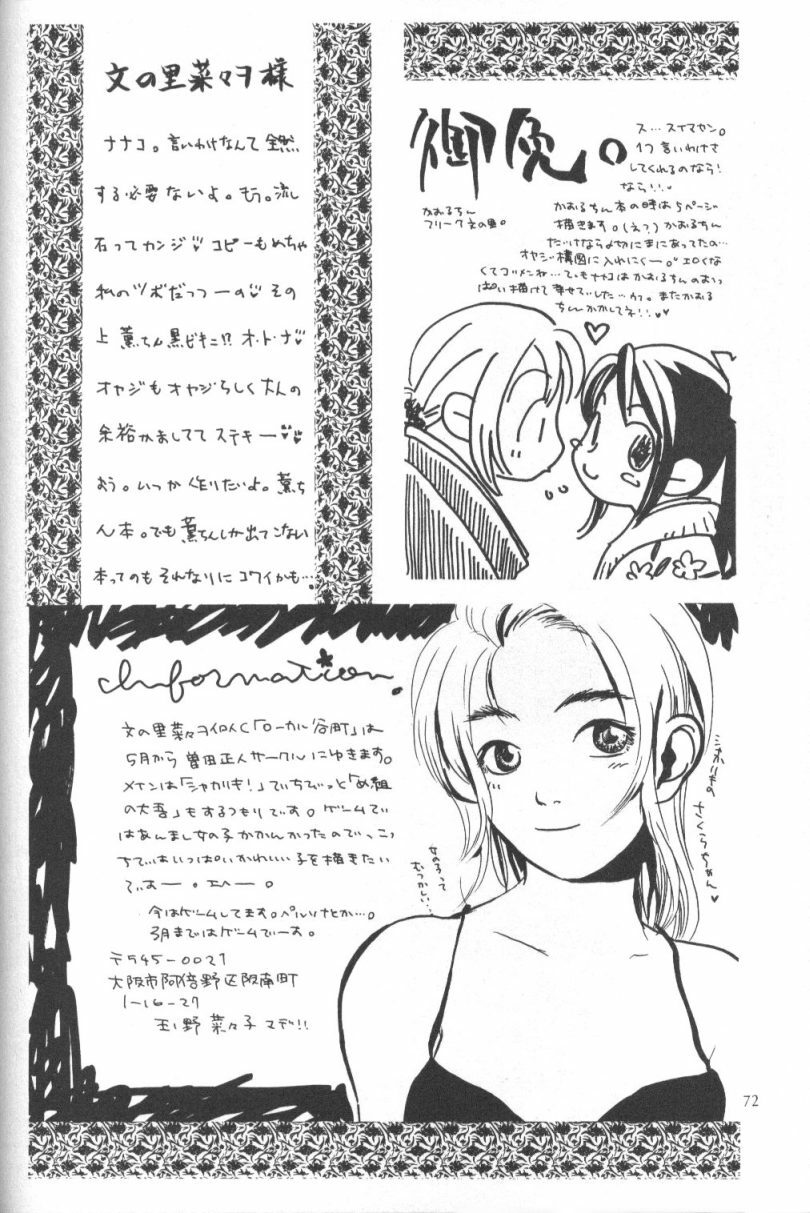 文の里菜々ヲ様
ナナコ。言いわけなんて全然
する必要ないよ。もう。流
石ってカンジ♥コピーもめちゃ
私のツボだっつーの♥その
上薫ちん黒ビキニ!?オ・ト・ナ♥
オヤジもオヤジらしく大人の
余裕かましててステキー♥♥
おう。いつか作りたいよ。薫ち
ん本。でも薫ちんしか出てこない
本ってのもそれなりにコワイかも…
御免。
かおるちん
フリーク文の里。
ス…スイマセン。
1つ言いわけさ
してくれるのなら!
なら!!♥
かおるちん本の時は5ページ
描きます。(え?)かおるちん
だけなら〆切にまにあってたの…
オヤジ構図に入れにくー。エロくな
くてゴメンね…でもナナコはかおるちんのおっ
ぱい描けて幸せでした…ウフ。またかおる
ちんかかしてネ!!♥♥
Information.
文の里菜々ヲイロイく「ローカル谷町」は
5月から曽田正人サークルにゆきます。
メインは「シャカリキ!」でいちびっと「め組
の大吾」もするつもりです。ゲームで
はあんまし女の子かかんかったので、こっ
ちではいっぱいかわいい子を描きたい
でぃすー。エヘー。
今はゲームしてます。ペルソナとか…。
3月まではゲームでーす。
〒545-0021
大阪市阿倍野区阪南町
1-16-27
玉ノ野菜々子マデ!!
女の子って
むつかしい…
シャカリキの
さくらちゃん♥
72